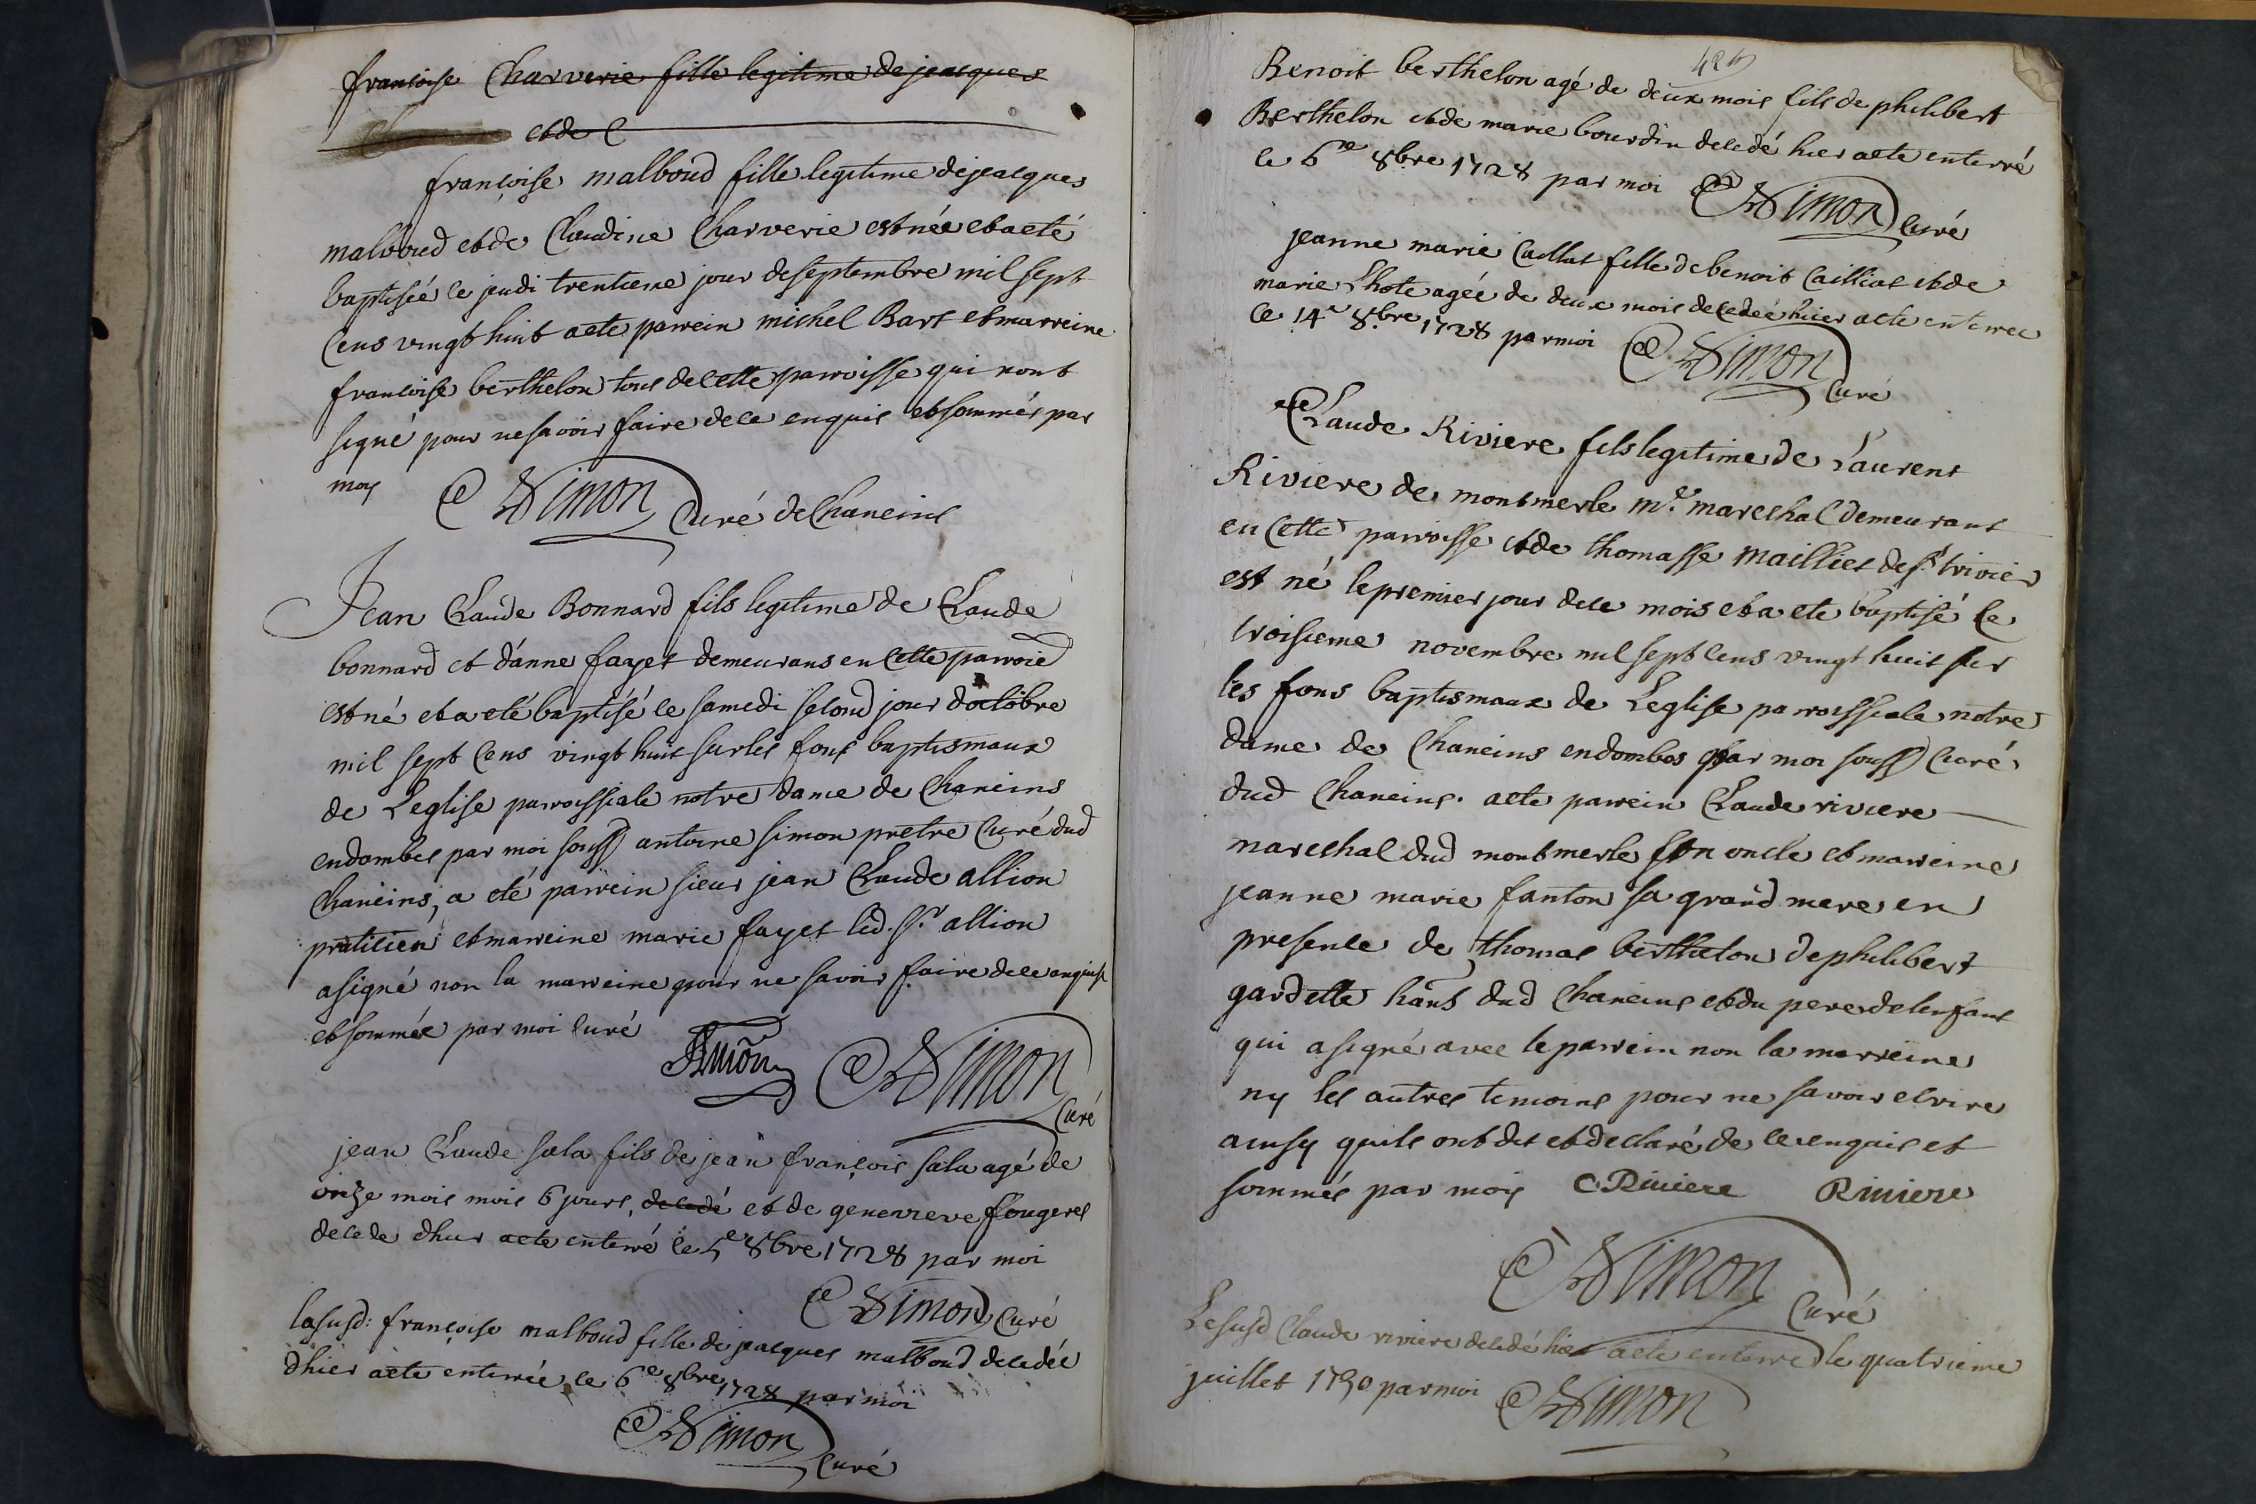 francoise Charverie fille legitime de jacques
et de C
françoise malboud fille legitime de jacques
malboud et de Claudine Charverie est née et a eté
baptisée le jeudi trentieme jour de septembre mil sept
cens vingt huit a ete parrein michel Bart et marreine
francoise berthelon tous de cette parroisse qui nont
signé pour ne savoir faire de ce enquis et sommés par
moy Simon Curé de Chaneins
Jean Claude Bonnard fils legitime de Claude
bonnard et d'anne fayet demeurans en cette parroie
est né et a eté baptisé le samedi second jour doctobre
mil sept cens vingt huit sur les fons baptismaux
de Leglise parroissiale notre dame de Chaneins
en dombes par moi souss antoine simon pretre Curé dud
Chaneins, a eté parrein sieur jean Claude allion
praticien et marreine marie fayet led. sr. allion
a signé non la marreine pour ne savoir faire de ce enquise
et sommée par moi curé
Allion Simon
Curé
jean Claude sala fils de jean françois sala agé de
onze mois mois 6 jours, decedé et de genevieve fougeres
decede dhier a ete enterré le 5e 8bre 1728 par moi
Simon Curé
la susd: françoise malboud fille de jacques malboud decedée
dhier a ete enterrée le 6e 8bre 1728 par moi
Simon
Curé
Benoit berthelon agé de deux mois fils de philibert
Berthelon et de marie bourdin decedé hier a ete enterré
le 6me 8bre 1728 par moi Simon Curé
jeanne marie Caillat fille de benoit Cailliat et de
marie Lhote agée de deux mois decedeé hier a ete enterree
le 14e 8bre 1728 par moi Simon
Curé
Claude Riviere fils legitime de Laurent
Riviere de montmerle me. marechal demeurant
en cette parroisse et de thomasse Mailliet de st. trivier
est né le premier jour de ce mois et a ete baptisé le
troisieme novembre mil sept cens vingt huit sur
les fons baptismaux de Leglise parroissiale notre
dame de Chaneins en dombes par moi souss Curé
dud Chaneins. a ete parrein Claude riviere
marechal dud montmerle son oncle et marreine
jeanne marie fanton sa grand mere en
presence de thomas berthelon de philibert
gardette hans dud Chaneins et du pere de lenfant
qui a signé avec le parrein non la marreine
ny les autres temoins pour ne savoir ecrire
ainsy quils ont dit et declaré de ce enquis et
sommés par moy C. Riviere Riviere
Simon
Curé
Le susd Claude riviere decedé hier a ete enterré le quatrieme
juillet 1730 par moi Simon